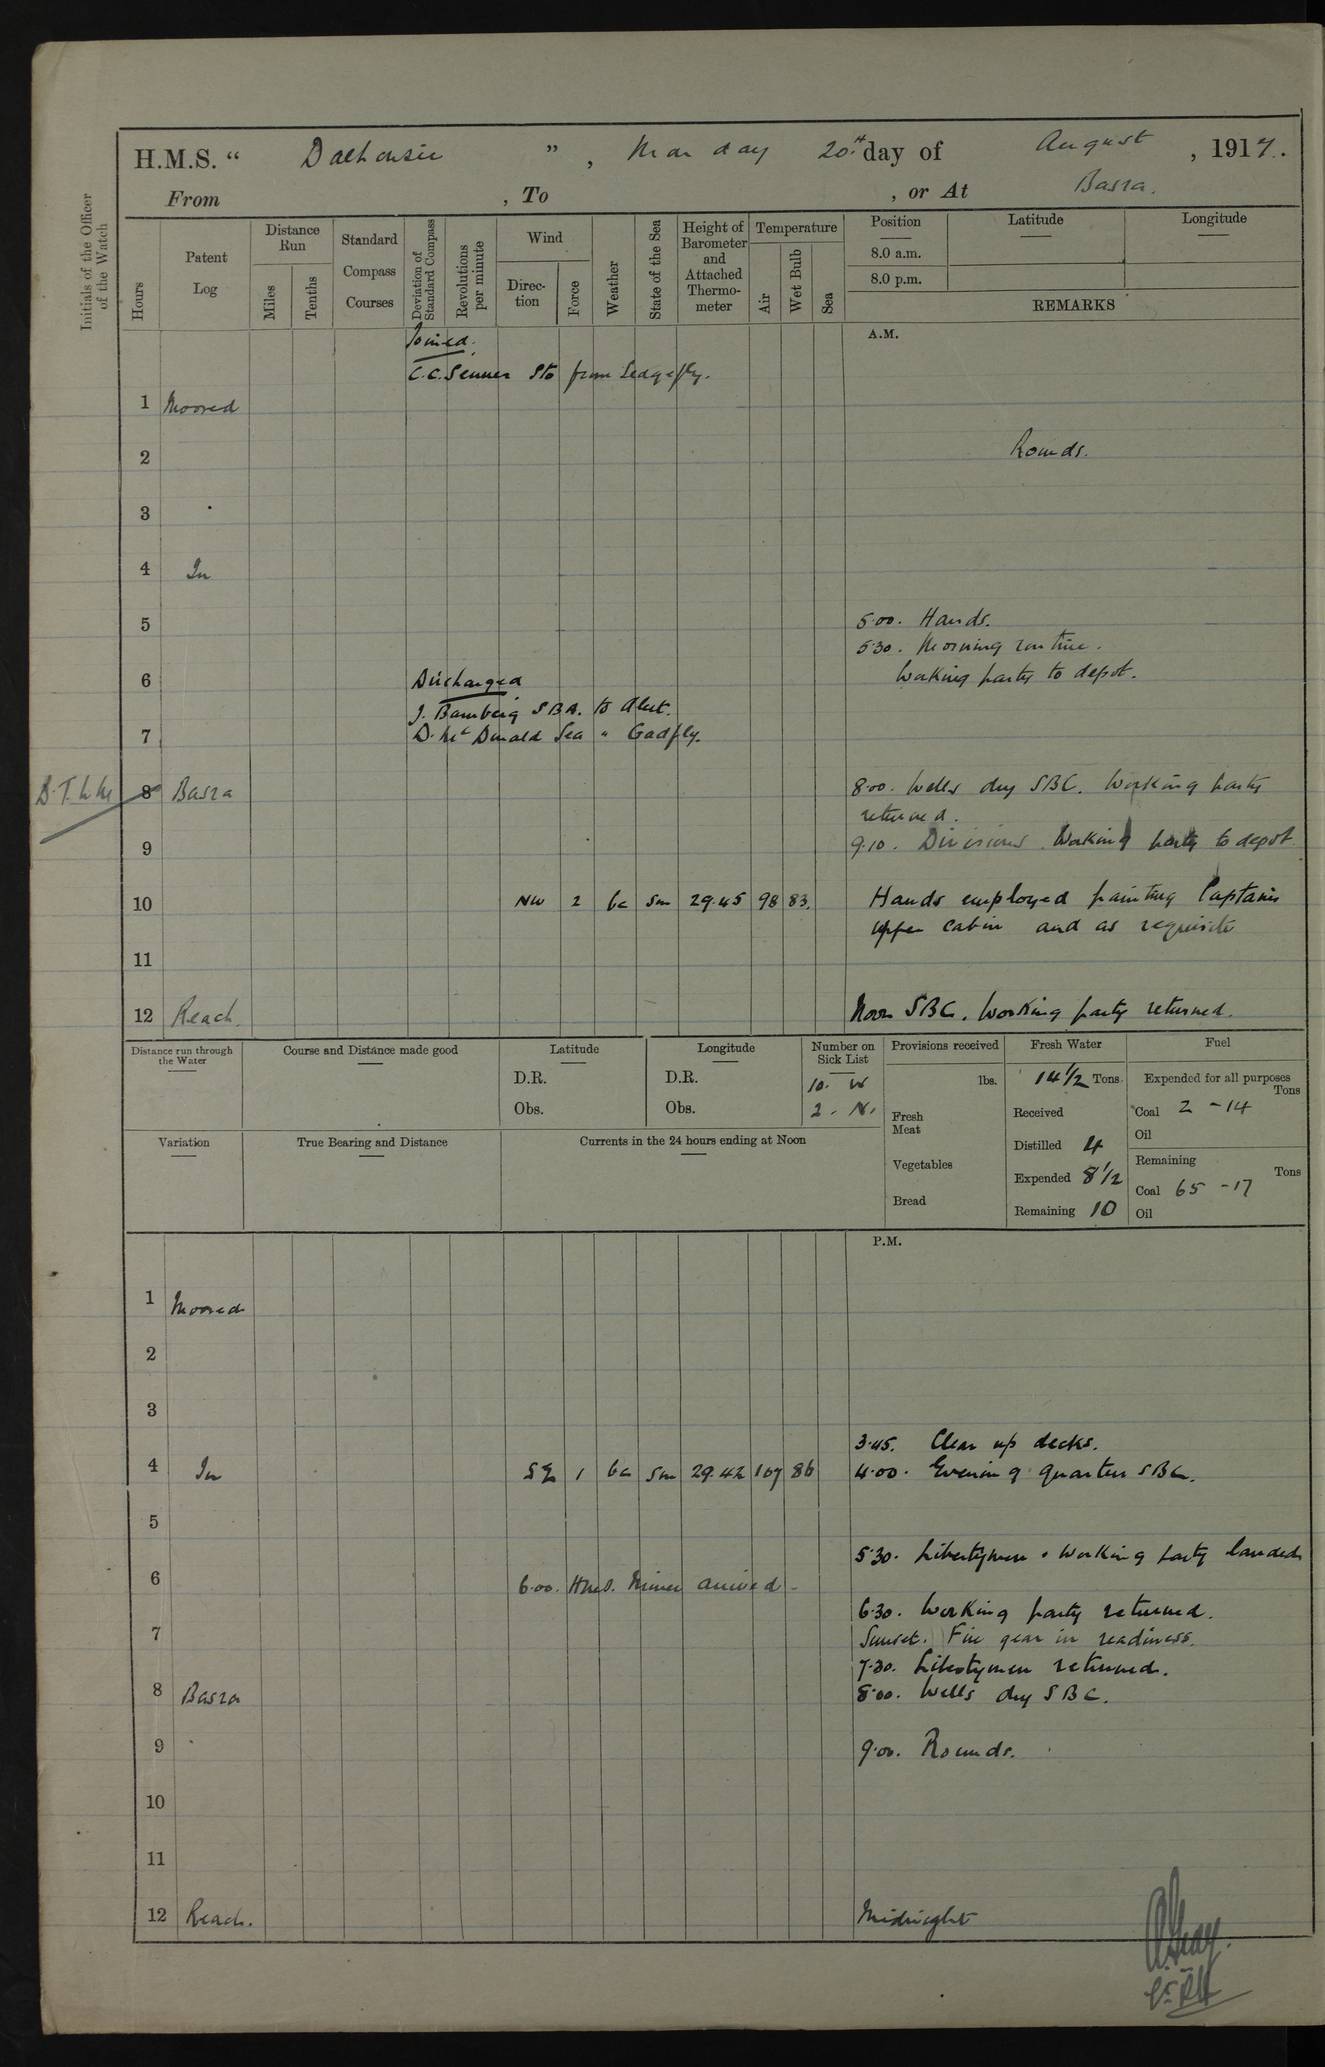 H.M.S. “ Dalhousie ” , Monday 20th day of August , 1917.
From , To , or At Basra.
Initials of the Officer of the Watch
Hours
Patent Log
Distance Run
Miles
Tenths
Standard Compass Courses
Deviation of Standard Compass
Revolutions per minute
Wind
Direction
Force
Weather
State of the Sea
Height of Barometer and Attached Thermometer
Temperature
Air
Wet Bulb
Sea
Position
8.0 a.m.
8.0 p.m.
Latitude
Longitude
REMARKS
A.M.
Joined.
C.C. Senner Sto from Sedgefly.
1 Moored
2 Rounds.
3
4 In
5 5.00. Hands.
5.30. Morning routine.
6 Working party to depot.
Discharged
J. Bamberg SBA. to Alert.
7 D. McDonald Sea " Gadfly.
8 Basra 8.00. Wells dry SBC. Working party
returned.
9 9.10. Divisions. Working party to depot
10 NW 2 bc Sm 29.45 98 83. Hands employed painting Captains
upper cabin and as requisite
11
12 Reach. Noon SBC. Working party returned.
Distance run through the Water
Course and Distance made good
Latitude
D.R.
Obs.
Longitude
D.R.
Obs.
Number on Sick List
10. W
2. N.
Provisions received
lbs.
Fresh Meat
Vegetables
Bread
Fresh Water
14 1/2 Tons
Received
Distilled 4
Expended 8 1/2
Remaining 10
Fuel
Expended for all purposes
Tons
Coal 2 - 14
Oil
Remaining
Tons
Coal 65 - 17
Oil
Variation
True Bearing and Distance
Currents in the 24 hours ending at Noon
P.M.
1 Moored
2
3
3.45. Clear up decks.
4 In SE 1 bc Sm 29.42 107 86 4.00. Evening quarters SBC.
5
5.30. Libertymen & working party landed
6 6.00. HMS. Miner arrived -
6.30. Working party returned.
7 Sunset. Fire gear in readiness.
7.30. Libertymen returned.
8 Basra 8.00. Wells dry SBC.
9 9.00. Rounds.
10
11
12 Reach. Midnight